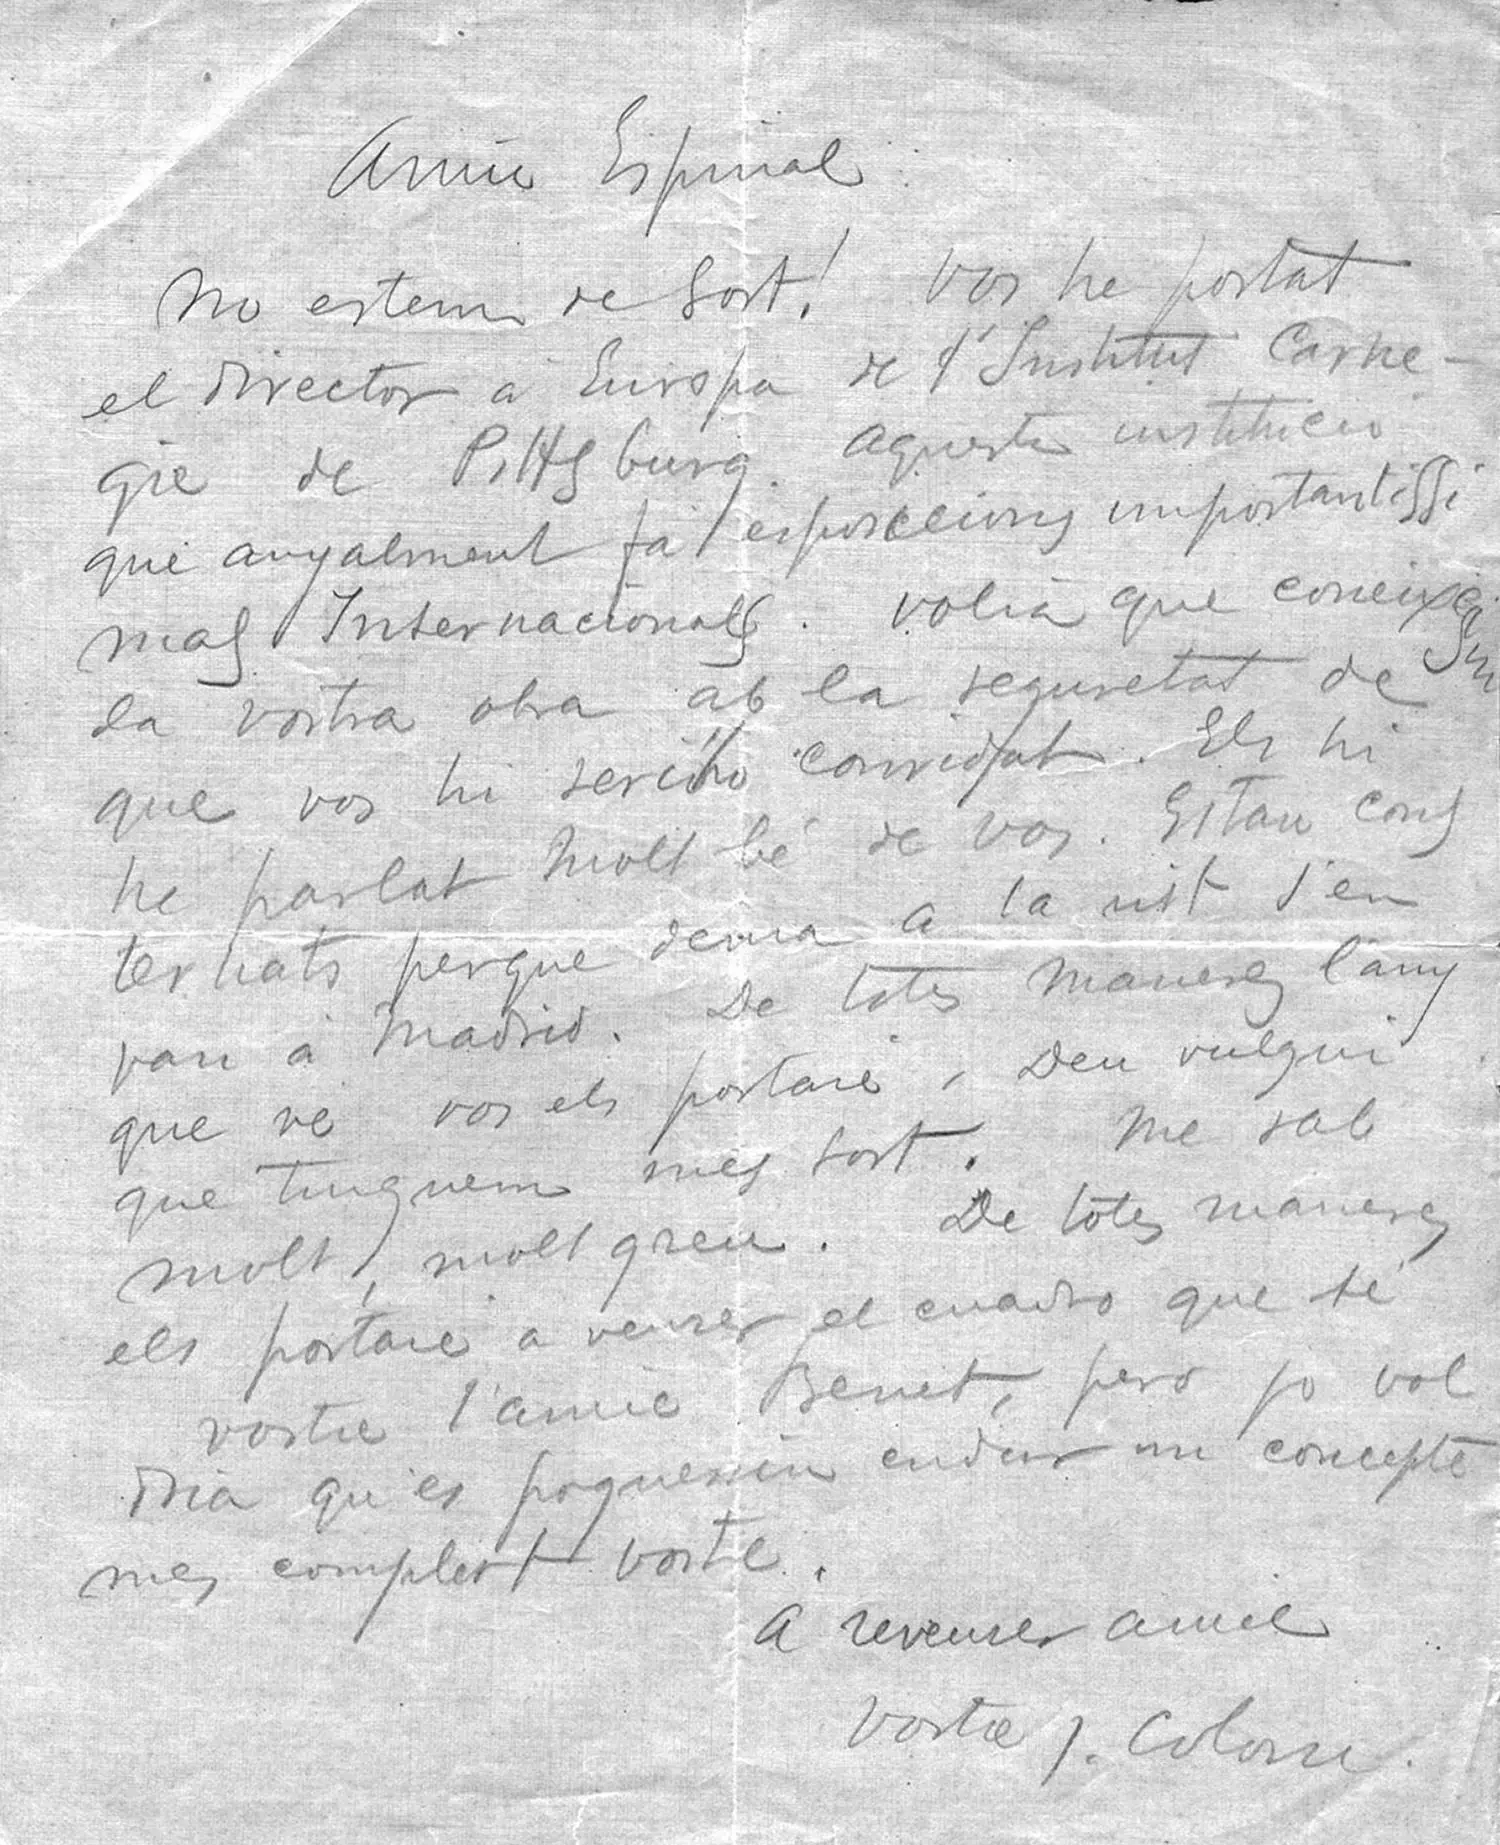 Amic Espinal
No estem de Sort! Vos he portat
el director a Europa de l'Institut Carne-
gie de Pittsburg. Aquesta institució
que anyalment fa esposicions importantissi
mas Internacionals. Volia que coneixesin
la vostra obra ab la seguretat de
que vos hi serieu convidat. Els hi
he parlat molt bé de vos. Estan cons
ternats perque dema a la nit s'en
van a Madrid. De totes maneres l'any
que ve vos els portaré, Deu vulgui
que tinguem mes sort. Me sab
molt, molt greu. De totes maneres
els portaré a veurer el cuadro que té
vostre l'amic Benet, pero jo vol
dria qu'es poguessin endur un concepte
mes complert vostre.
A reveurer amic
Vostre J. Colom.